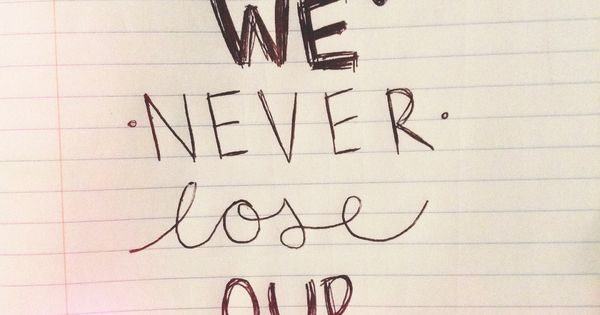 WE
·NEVER·
lose
OUR